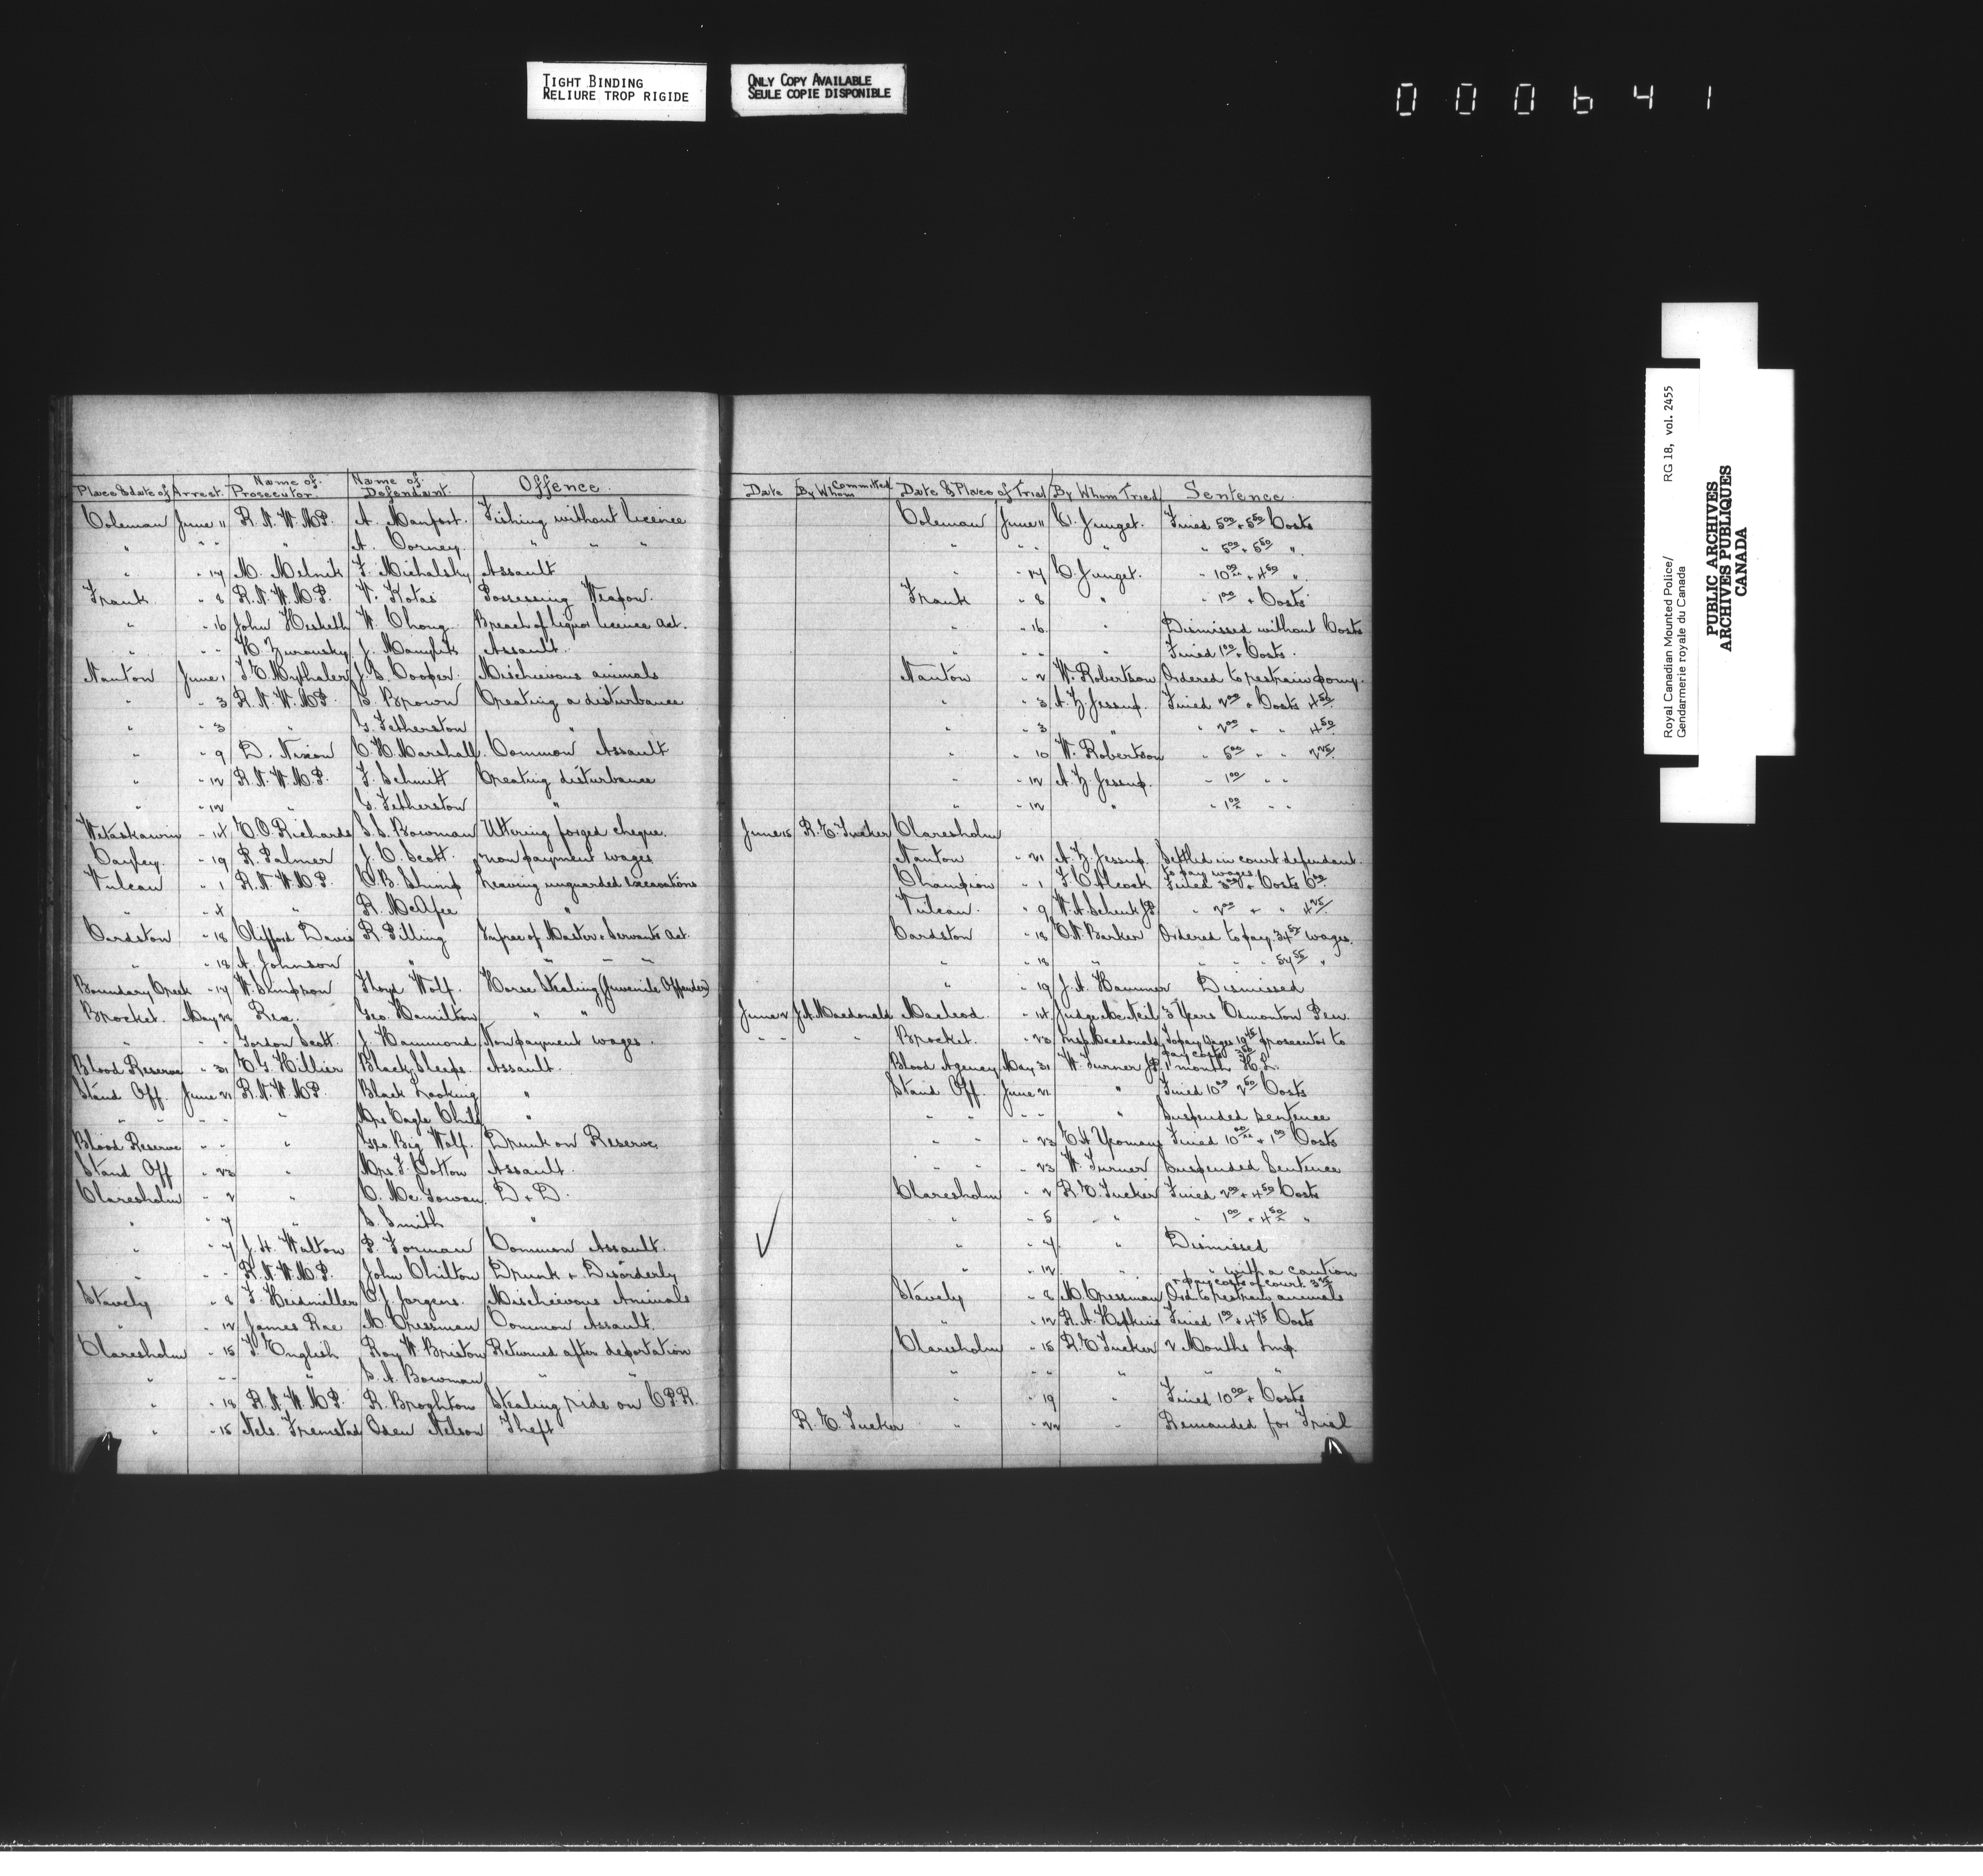 TIGHT BINDING
RELIURE TROP RIGIDE
ONLY COPY AVAILABLE
SEULE COPIE DISPONIBLE
000641
Royal Canadian Mounted Police/ RG 18, vol. 2455
Gendarmerie royale du Canada
PUBLIC ARCHIVES
ARCHIVES PUBLIQUES
CANADA
Place & date of Arrest. Name of Prosecutor. Name of Defendant. Offence. Date By Whom Committed Date & Place of Trial By Whom Tried Sentence.
Coleman June 11 R.N.W.M.P. A. Monfort. Fishing without licence Coleman June 11 C. Junget. Fined 5.00 + 5.50 Costs
" " " " A. Corney " " " " " " " " 5.00 + 5.50 "
" " 17 M. Melnik F. Michalsky Assault " " 17 C. Junget. " 10.00 + 4.50 "
Frank " 8 R.N.W.M.P. W. Kotas Possessing Weapon. Frank " 8 " " 1.00 + Costs
" " 16 John Hesketh W. Chong Breach of liquor licence act. " " 16 " Dismissed without Costs
" " " J. Assault. " " " " Fined 1.00 + Costs.
Nanton June 1 J. G. Cooper. Mischievous animals Nanton " 2 W. Robertson Ordered to restrain pony.
" " 3 R.N.W.M.P. S. Brown Creating a disturbance " " 3 A. Z. Jessup. Fined 2.00 + Costs 4.50
" " 3 " G. Fetherston " " " 3 " " 2.00 + " 4.50
" " 9 D. Nixon C. H. Marshall. Common Assault " " 10 W. Robertson " 5.00 " " 2.25
" " 12 R.N.W.M.P. F. Schmitt Creating disturbance " " 12 A. Z. Jessup. " 1.00 " "
" " 12 " G. Fetherston " " " 12 " " 1.00 " "
Wetaskawin " 14 C. O. Richards S. S. Bowman Uttering forged cheque. June 15 R. E. Tucker Claresholm
Cayley. " 19 R. Palmer J. C. Scott. non payment wages Nanton " 21 A. Z. Jessup. Settled in court defendant
to pay wages
Vulcan " 1 R.N.W.M.P. C. B. Shimp Leaving unguarded excavations Champion " 1 F. C. Alcock Fined 3.00 + Costs 6.00
" " 4 " R. McAfee " Vulcan. " 9 W. A. Schenk JP. " 2.00 + " 4.25
Cardston " 18 Clifford Davis R. Pilling Infrac of Master & Servants act. Cardston " 18 C. N. Barker Ordered to pay wages.
" " 18 A. Johnson " " " " " " 18 " " " " "
Boundary Creek " 17 W. Simpson Floyd Wolf. Horse Stealing (Juvenile Offender) " " 19 J. A. Hammer Dismissed
Brocket. May 23 Rex. Geo. Hamilton " " June 2 J. A. Macdonald Macleod. " 14 Judge McNeil 3 Years Edmonton Pen.
" " " Gordon Scott. J. Hammond Non payment wages. " " " Brocket. " 23 Insp Macdonald To pay Wages prosecutor to
pay costs
Blood Reserve " 31 E. G. Hillier Black Sleeps. Assault. Blood Agency May 31 W. Turner JP. 1 month H.L.
Stand Off. June 21 R.N.W.M.P. Black Looking " Stand Off. June 21 " Fined 10.00 2.50 Costs
" " " " Mrs Eagle Child " " " " " " Suspended sentence
Blood Reserve " " " Geo. Big Wolf. Drunk on Reserve. " " " 23 E. H. Yeomans Fined 10.00 + 1.00 Costs
Stand Off " 23 " Mrs. F. Cotton Assault. " " " 23 W. Turner Suspended Sentence
Claresholm " 2 " C. McGowan D + D. Claresholm " 2 R. E. Tucker Fined 2.00 + 4.50 Costs
" " " S. Smith " " " 5 " " " 1.00 + 4.50 "
" " 7 J. H. Walton P. Forman Common Assault. " " 7 " Dismissed
" " " R.N.W.M.P. John Chilton Drunk + Disorderly " " 12 " " with a caution
+ pay costs of court
Stavely " 8 F. Heidmiller C. J. Jorgens. Mischievous Animals Stavely " 8 M. Cressman Ord. to restrain animals
" " 12 James Rae M. Cressman Common Assault. " " 12 R. A. Hopkins Fined 1.00 + 4.75 Costs
Claresholm " 15 F. English Roy W. Briston Returned after deportation Claresholm " 15 R. E. Tucker 2 Months Imp.
" " " " S. A. Bowman " " " " " " " "
" " 18 R.N.W.M.P. R. Broghton Stealing ride on C.P.R. " " 19 " Fined 10.00 + Costs
" " 15 Nels. Fremstad Oden Nelson Theft R. E. Tucker " " 22 " Remanded for Trial